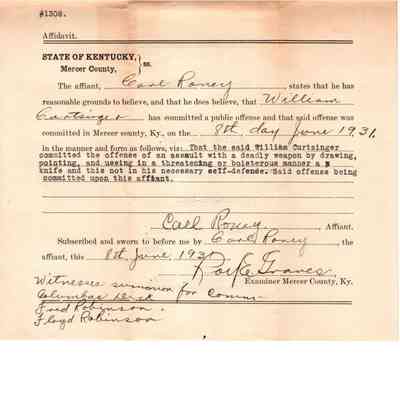 #1308.
Affidavit.
STATE OF KENTUCKY, } ss.
Mercer County,
The affiant, Carl Roney, states that he has
reasonable grounds to believe, and that he does believe, that William
Curtsinger has committed a public offense and that said offense was
committed in Mercer county, Ky., on the 8th day June 1931,
in the manner and form as follows, viz: That the said William Curtsinger
committed the offense of an assault with a deadly weapon by drawing,
pointing, and useing in a threatening or boisterous manner a
knife and this not in his necessary self-defense. Said offense being
committed upon this affiant.
Carl Roney, Affiant.
Subscribed and sworn to before me by Carl Roney, the
affiant, this 8th June, 1931
Graves
Examiner Mercer County, Ky.
Witnesses summon for Comm
Columbus
Fred Robinson.
Floyd Robinson